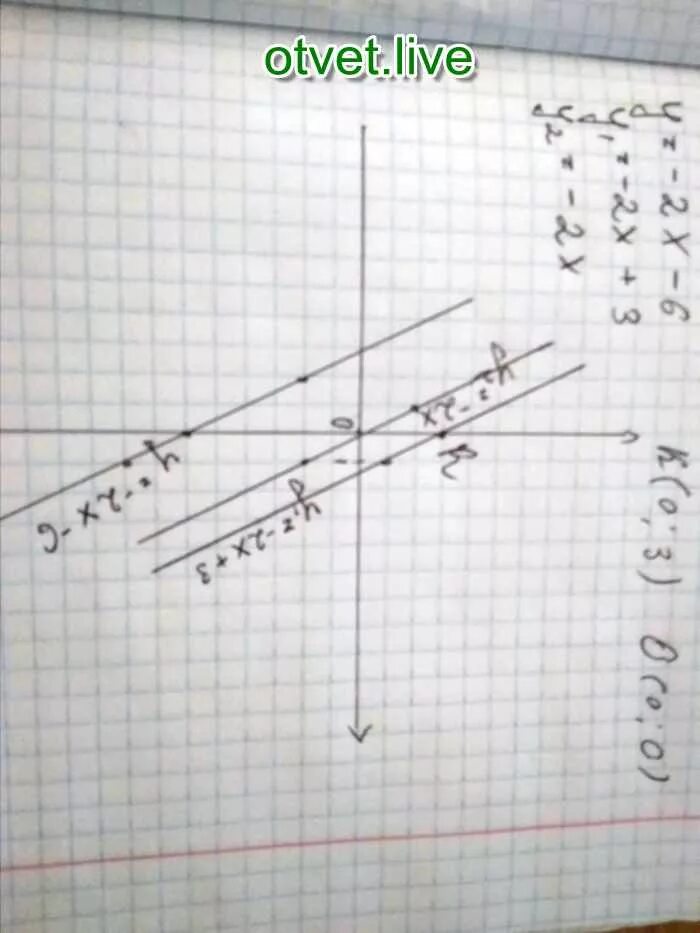 otvet.live
y = -2x - 6
y₁ = -2x + 3
y₂ = -2x
K(0; 3) O(0; 0)
y₂ = -2x
K
0
1
y₁ = -2x + 3
y = -2x - 6